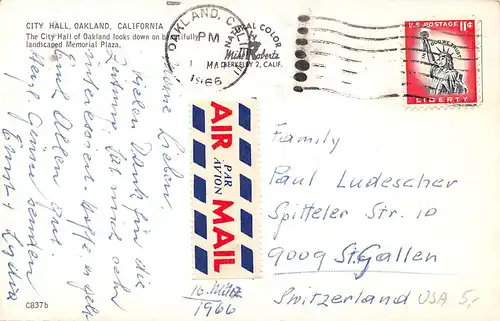 CITY HALL, OAKLAND, CALIFORNIA
The City Hall of Oakland looks down on beautifully
landscaped Memorial Plaza.
OAKLAND, CALIF
PM
1 MAR
1966
NATURAL COLOR
Mike Roberts
BERKELEY 2, CALIF.
U.S. POSTAGE 11¢
IN GOD WE TRUST
LIBERTY
Meine Lieben,
Vielen Dank für die
Zeitung. Hat mich sehr
interessiert. Hoffe es geht
Euch Allen gut.
Herzl. Grüsse senden
Ernst + Lydia
AIR MAIL
PAR AVION
Family
Paul Ludescher
Spitteler Str. 10
9009 St. Gallen
Switzerland
USA 5,-
10. März
1966
C837b